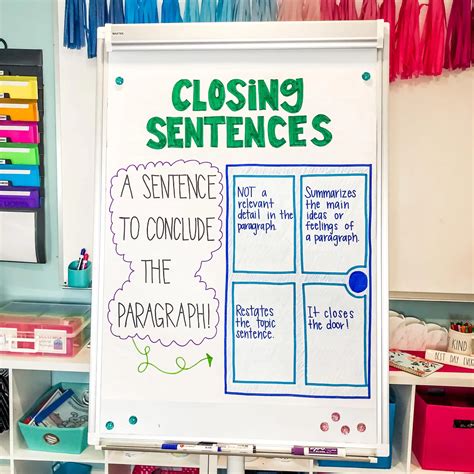 CLOSING
SENTENCES
A SENTENCE
TO CONCLUDE
THE
PARAGRAPH!
NOT a
relevant
detail in the
paragraph.
Summarizes
the main
ideas or
feelings of
a paragraph.
Restates
the topic
sentence.
It closes
the door!
KIND
BEST DAY EVER